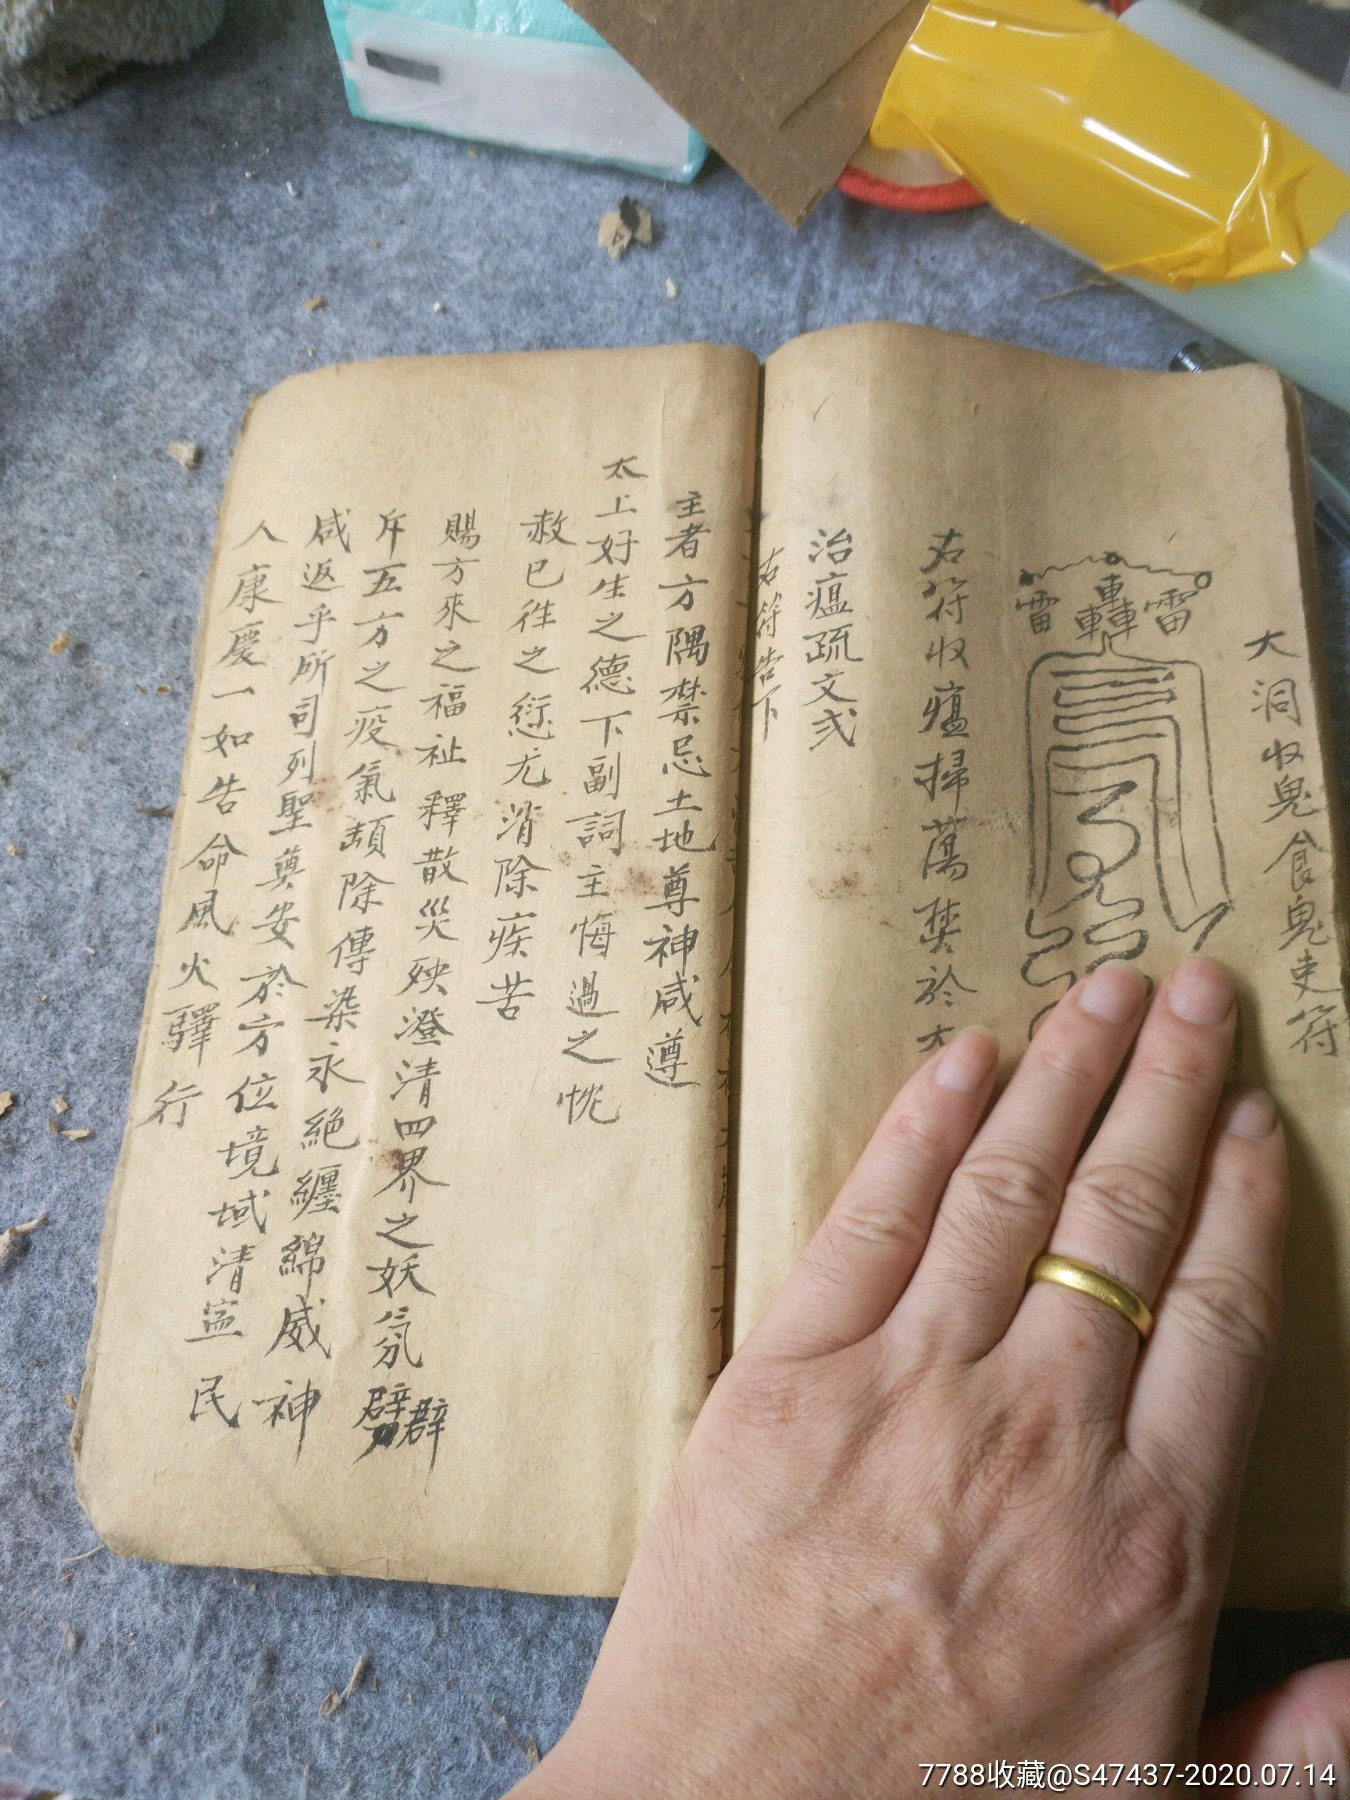 大洞收鬼食鬼吏符
雷轟雷
右符收瘟掃蕩焚於大
治瘟疏文式
右符告下
主者方隅禁忌土地尊神咸遵
太上好生之德下副詞主悔過之忱
赦已往之愆尤消除疾苦
賜方來之福祉釋散災殃澄清四界之妖氛劈
斥五方之疫氣頡除傳染永絕纏綿威神
咸返乎所司列聖奠安於方位境域清寧民
人康慶一如告命風火驛行
7788收藏@S47437-2020.07.14